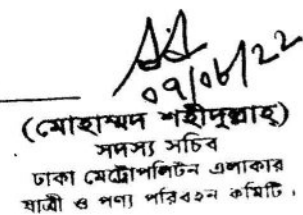 ০৭/০৮/২২
(মোহাম্মদ শহীদুল্লাহ)
সদস্য সচিব
ঢাকা মেট্রোপলিটন এলাকার
যাত্রী ও পণ্য পরিবহন কমিটি।